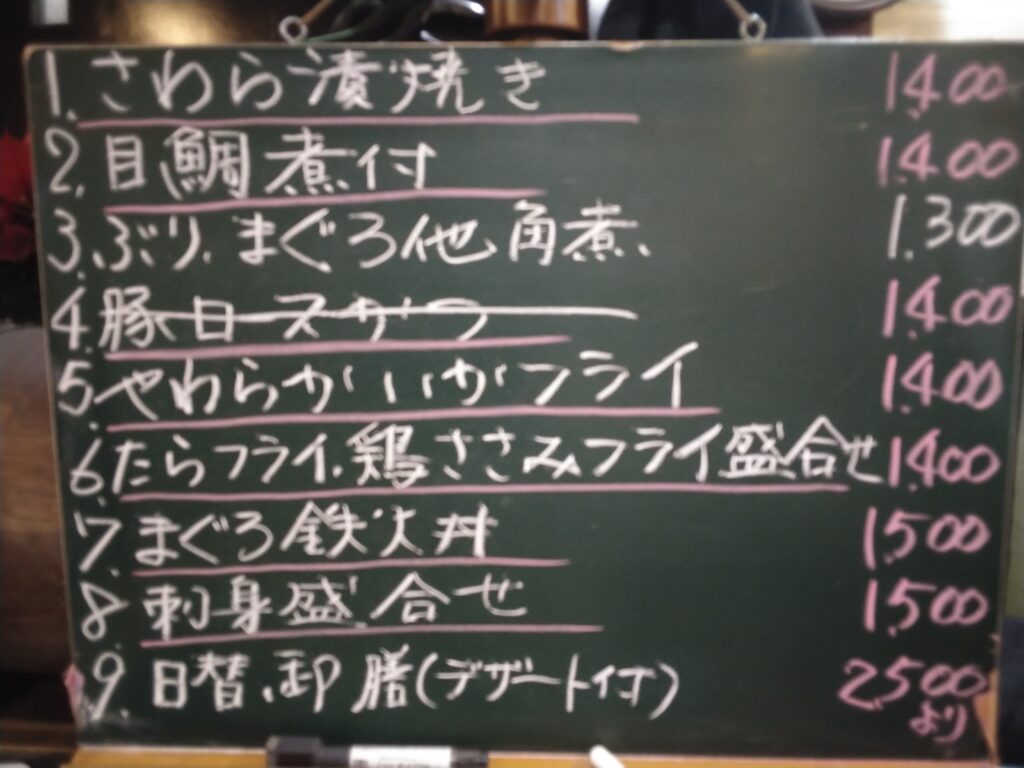 1. さわら漬焼き 1.400
2. 目鯛煮付 1.400
3. ぶり、まぐろ他角煮、 1.300
4. 豚ロースかつ 1.400
5. やわらかいいかフライ 1.400
6. たらフライ、鶏ささみフライ盛合せ 1.400
7. まぐろ鉄火丼 1.500
8. 刺身盛合せ 1.500
9. 日替、卸膳(デザート付) 2500
より